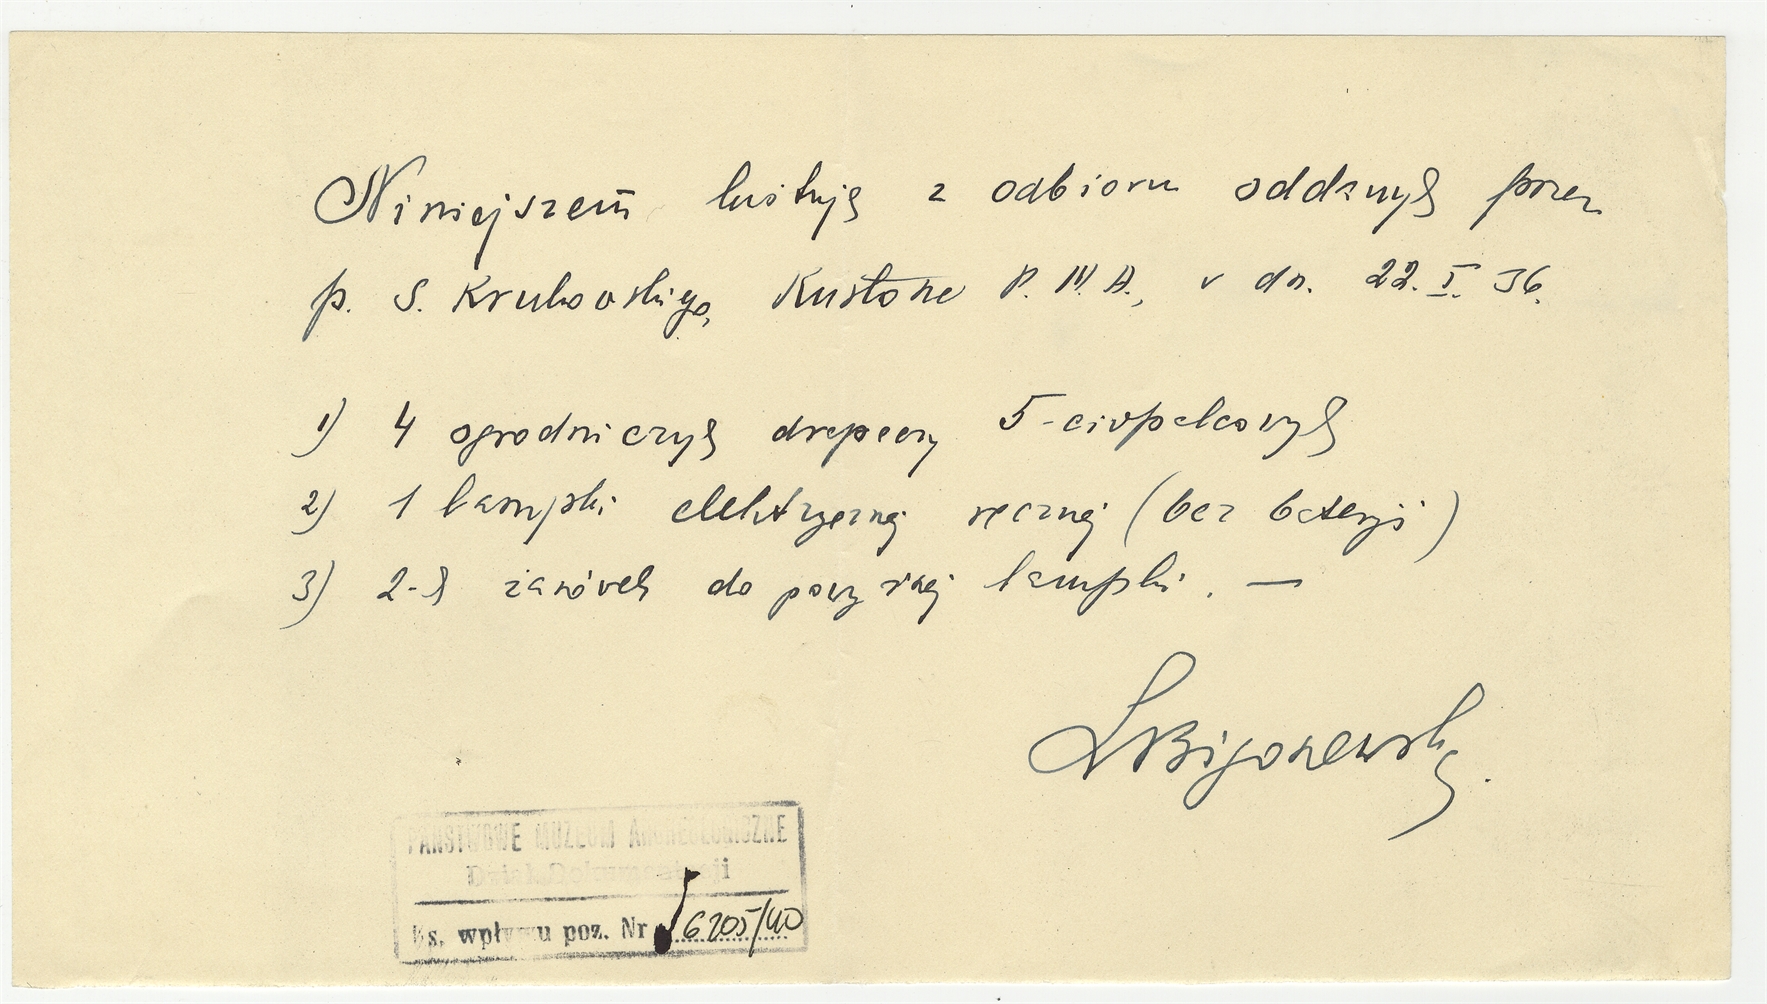 Niniejszem kwituję z odbioru oddanych przez
p. S. Krukowskiego, Kustosza P. M. A., w dn. 22. I. 36.
1) 4 ogrodniczych drapaczy 5-ciopalcowych
2) 1 lampki elektrycznej ręcznej (bez baterji)
3) 2-ch żarówek do powyższej lampki. —
LBigoszewski.
PAŃSTWOWE MUZEUM ARCHEOLOGICZNE
Dział Dokumentacji
Ks. wpływu poz. Nr 6205/40